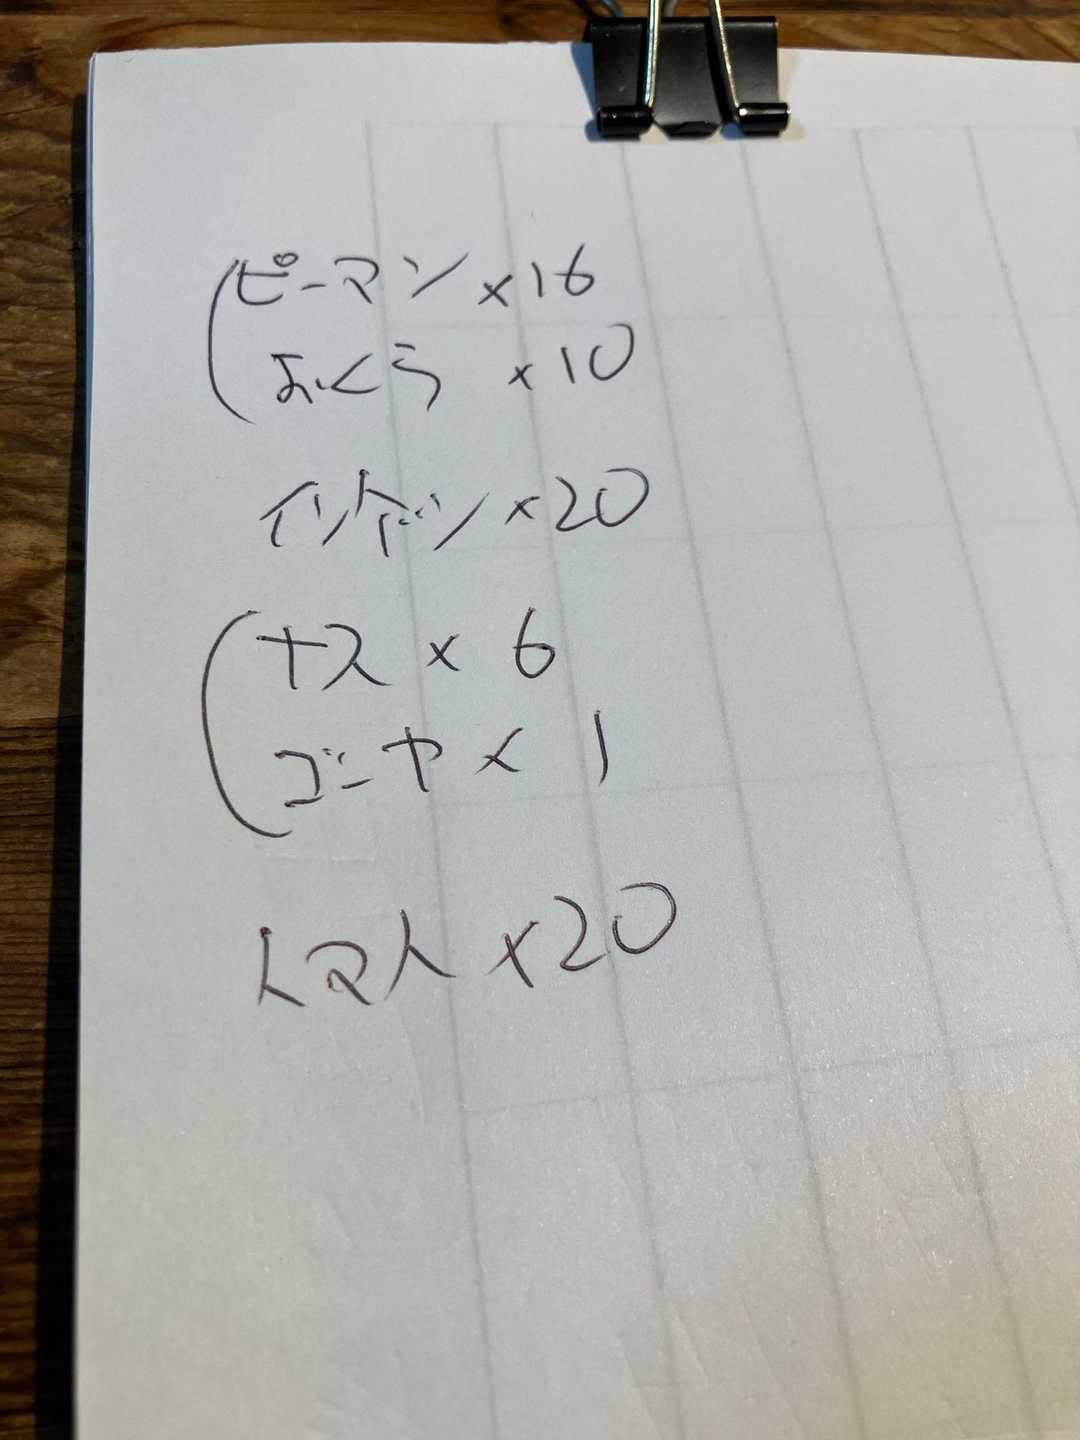 ピーマン×16
おくら ×10
インゲン×20
ナス × 6
ゴーヤ × 1
トマト ×20